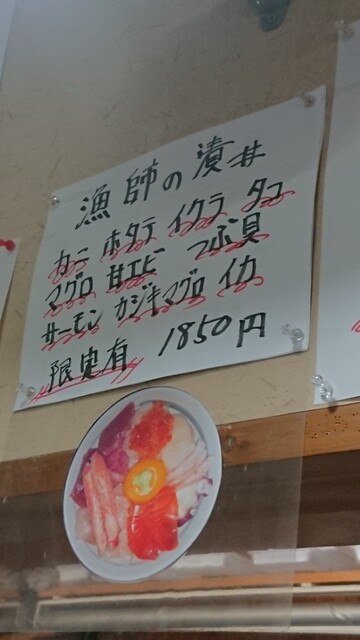 漁師の漬丼
カニ ホタテ イクラ タコ
マグロ 甘エビ つぶ貝
サーモン カジキマグロ イカ
限定有 1850円